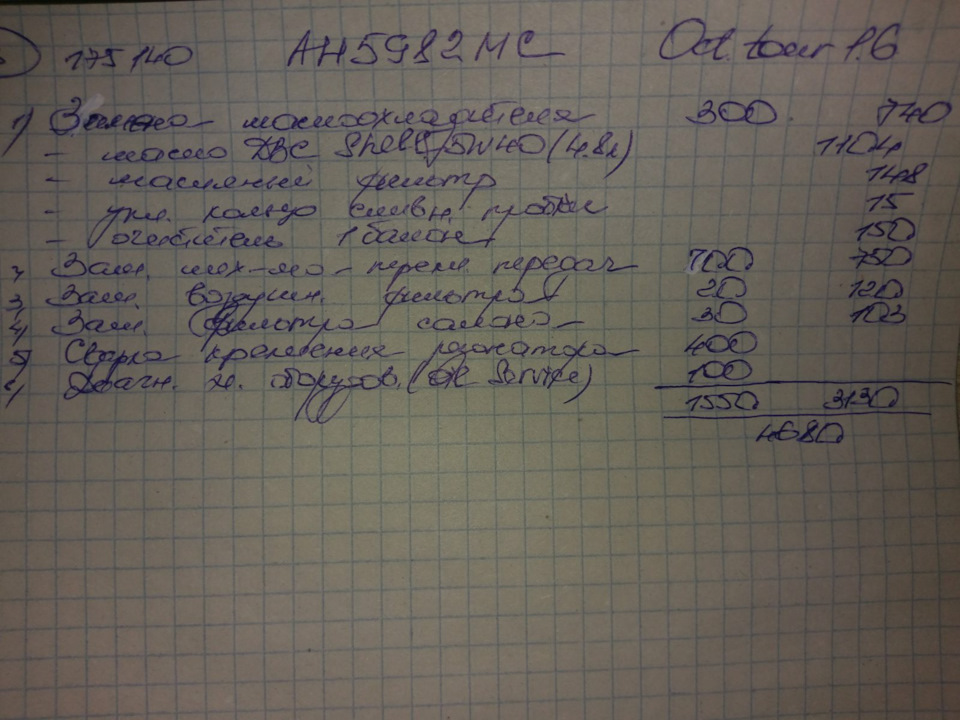 175140 AH5982MC Oct. tour 1.6
1) Замена маслоохладителя 300. 740
- масло ДВС Shell 5W40 (4.8л) 1104
- масляный фильтр 148
- упл. кольцо сливн. пробки 15
- очиститель 1 балон 150
2) Зам. мех-ма перекл передач 700 750
3) Зам. воздушн. фильтра 20 120
4) Зам. фильтра салона 30 103
5) Сварка крепления резонатора 400
6) Диагн. э. оборудов. 100
1550 3130
4680